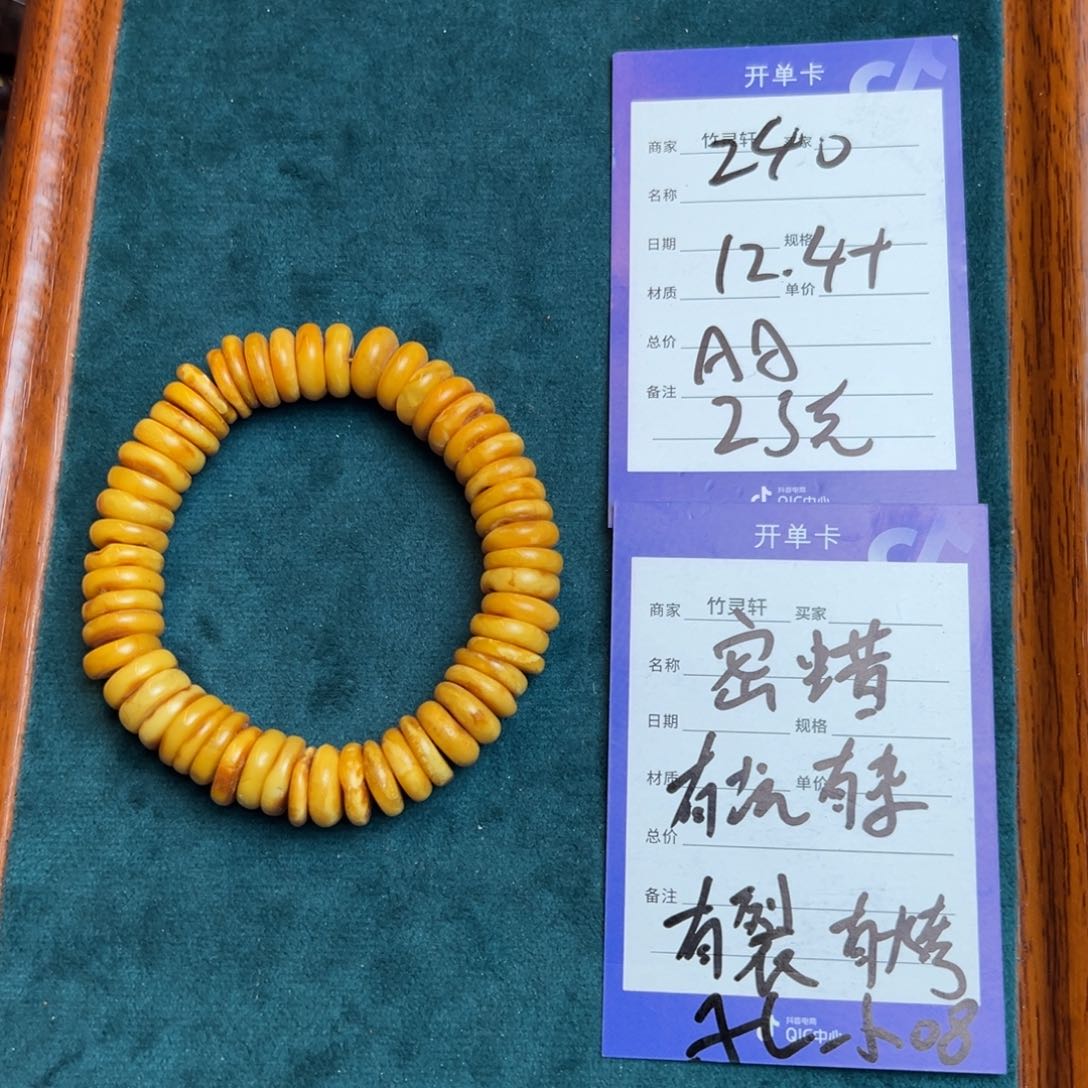 开单卡
商家 竹灵轩
240
名称
日期 规格
12.4+
材质 单价
总价
AA
备注
23克
抖音电商
QIC中心
开单卡
商家 竹灵轩 买家
名称 密蜡
日期 规格
材质 单价
有坑有
总价
备注
有裂 有烤
抖音电商
QIC中心
08